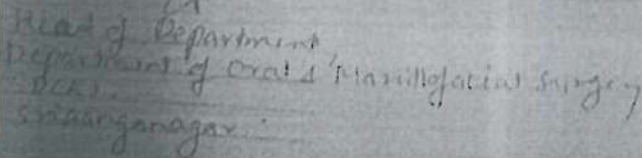 Head of Department
Department of Oral & Maxillofacial Surgery
Sriganganagar.